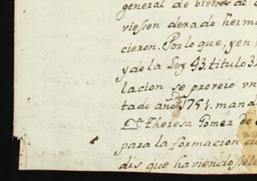 general de bienes de
viessen dexado herm
cieron. Por lo que, y en
y de la Ley 93. titulo 3.
lacion se proveio un
tado año 1751. mana
Dª. Theresa Gomez de
para la formacion de
dis que haviendosele